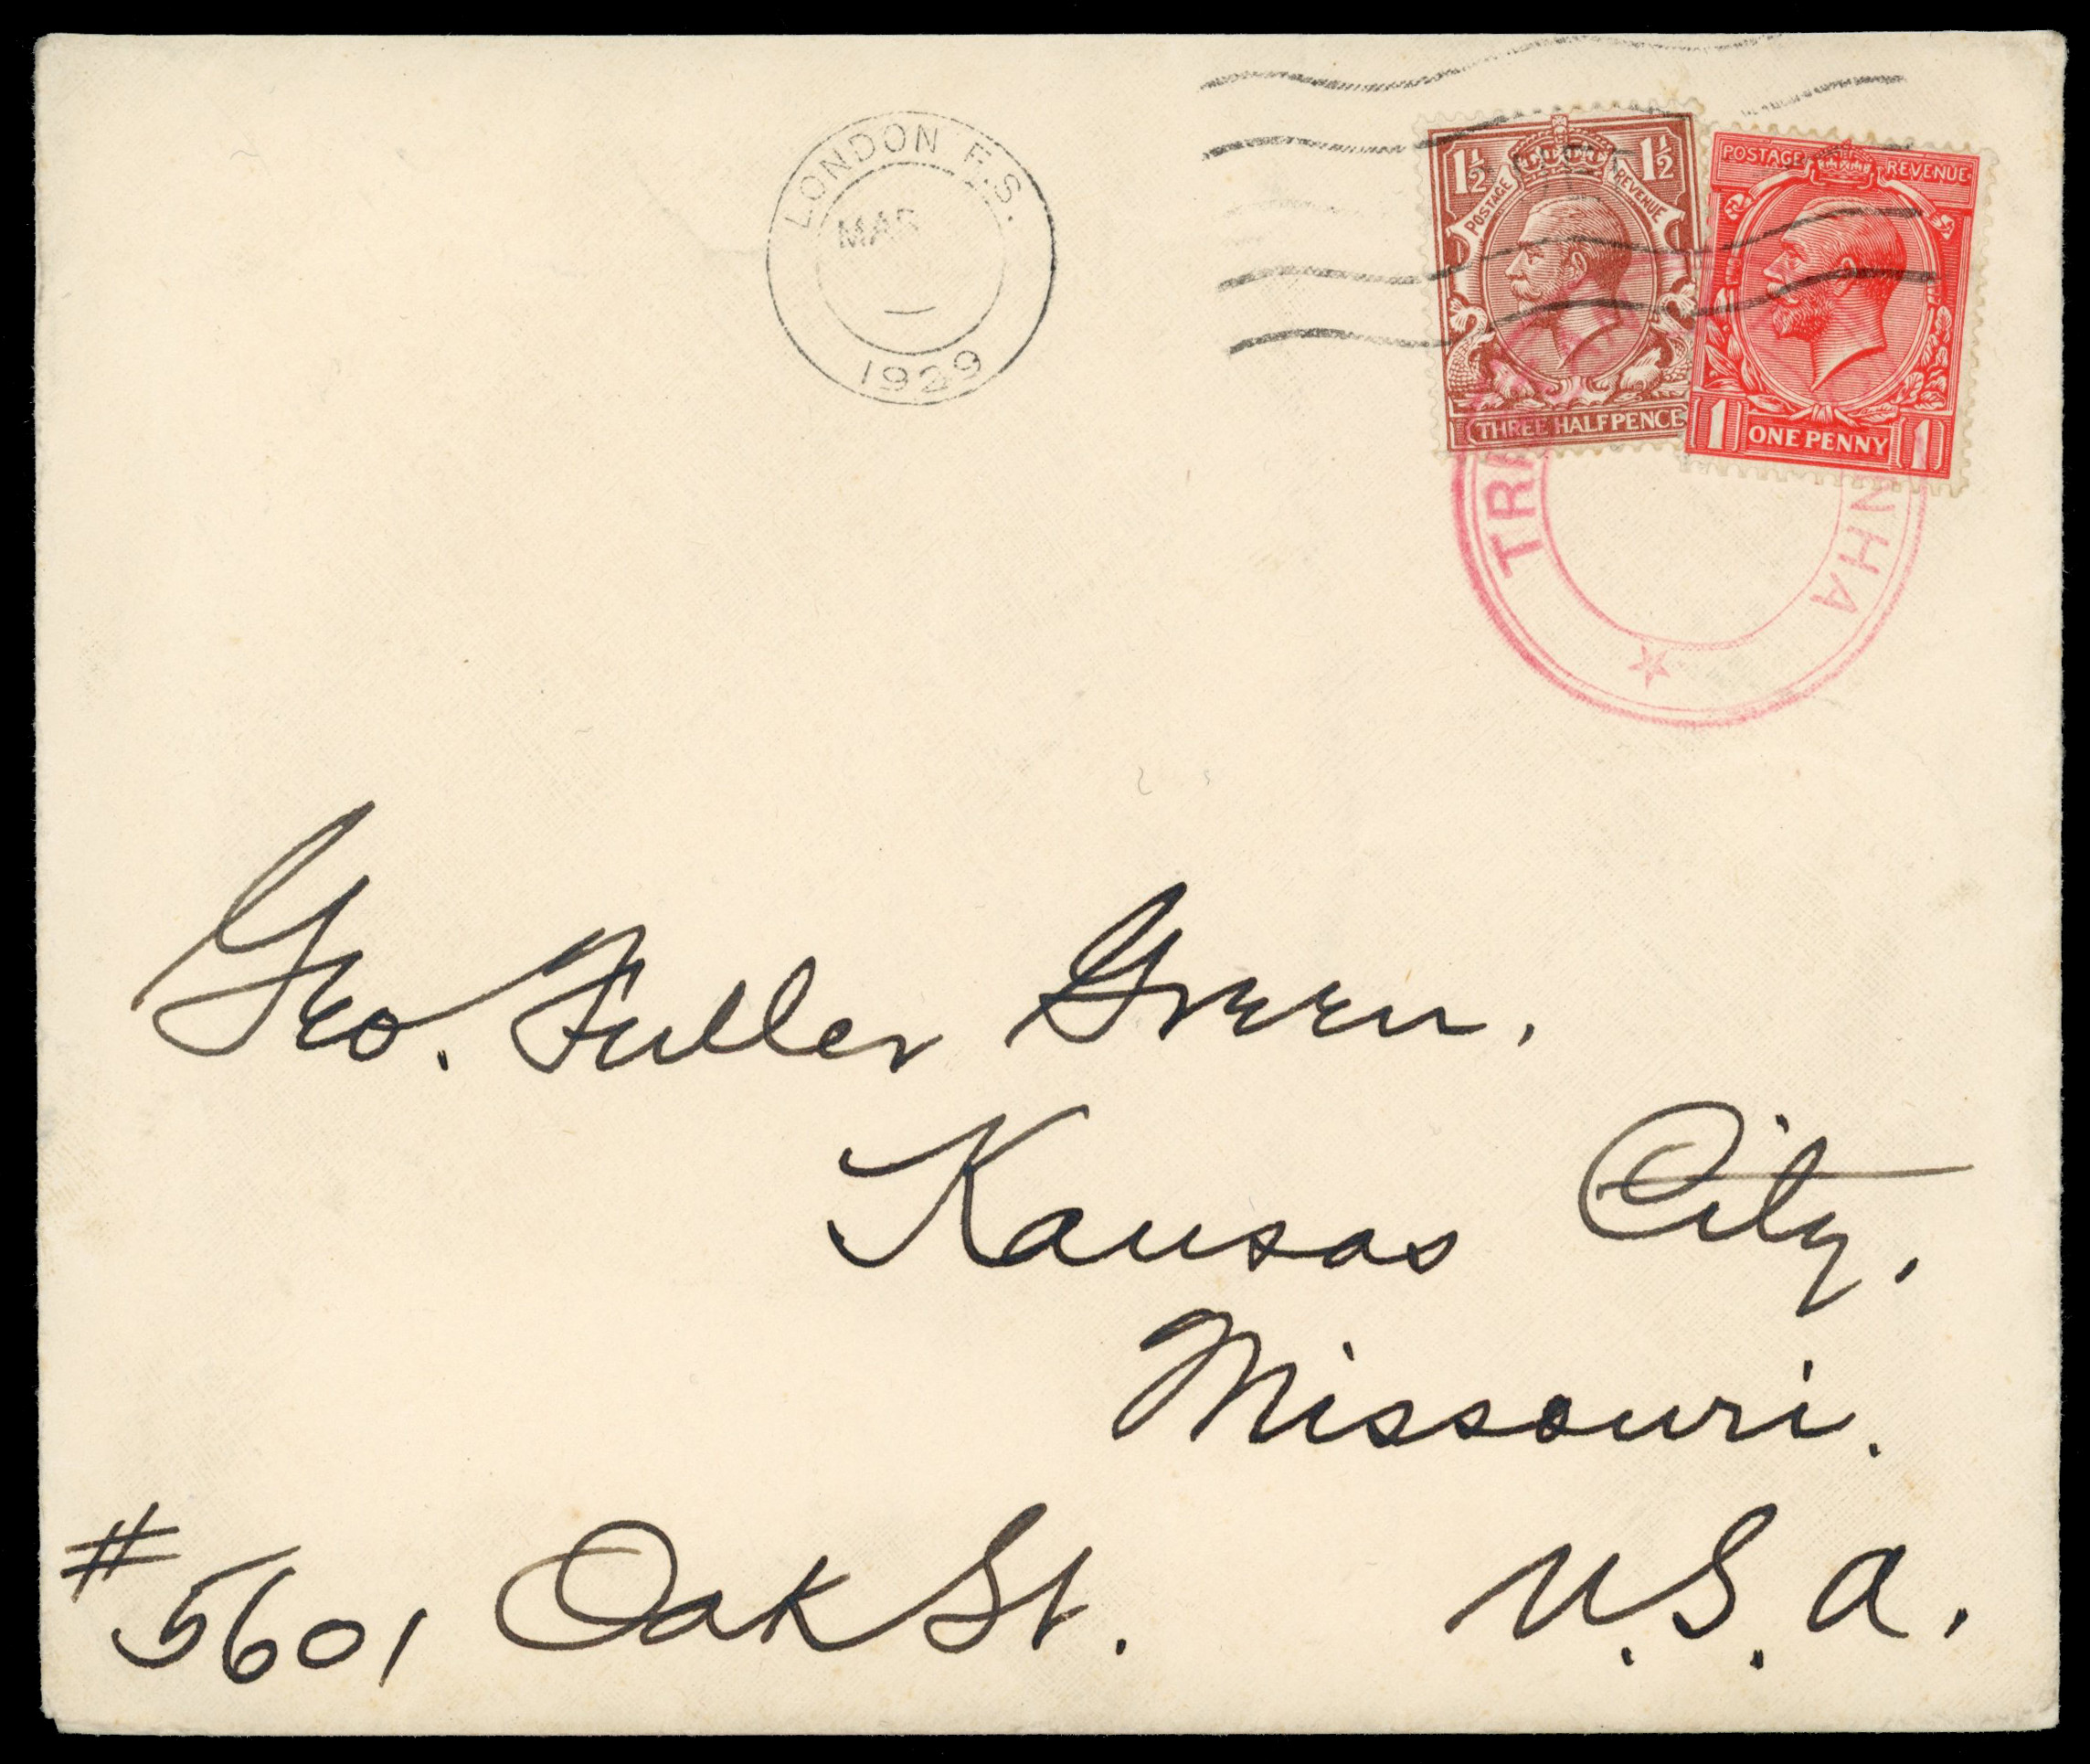 LONDON F.S.
MAR
1929
1½ 1½
POSTAGE REVENUE
THREE HALFPENCE
POSTAGE REVENUE
1 ONE PENNY 1
TRI NHA
Geo. Fuller Green.
Kansas City,
Missouri.
#5601 Oak St. U.S.A.